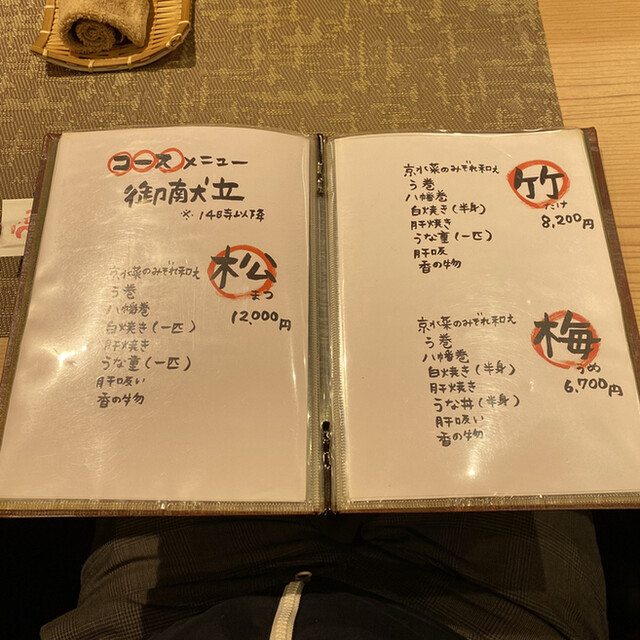 コースメニュー
御献立
※14時以降
松
まつ
12,000円
京水菜のみぞれ和え
う巻
八幡巻
白焼き(一匹)
肝焼き
うな重(一匹)
肝吸い
香の物
竹
たけ
8,200円
京水菜のみぞれ和え
う巻
八幡巻
白焼き(半身)
肝焼き
うな重(一匹)
肝吸
香の物
梅
うめ
6,700円
京水菜のみぞれ和え
う巻
八幡巻
白焼き(半身)
肝焼き
うな丼(半身)
肝吸い
香の物